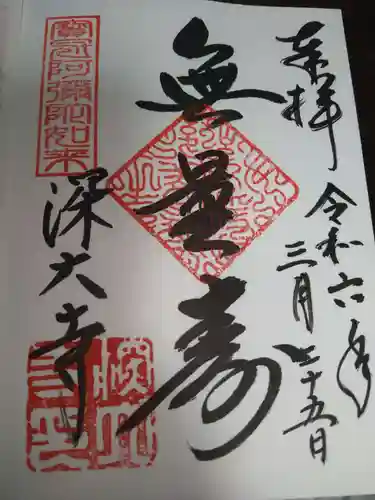 奉拝
令和六年
三月二十五日
無量寿
寳冠阿彌陀如来
深大寺